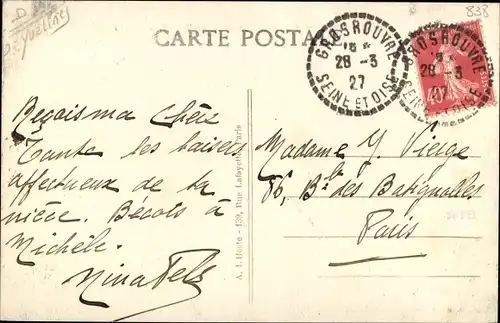 D
Yveline
838
CARTE POSTA
GROSROUVRE
28-3
27
SEINE ET OISE
GROSROUVRE
28-3
SEINE ET OISE
40c
Reçois ma Chère
Tante les baisers
affectueux de ta
nièce. Bécots à
Michèle.
Nina Fels
A. L'Hoste - 139, Rue Lafayette, Paris
Madame Y. Vierge
86, Blt des Batignolles
Paris